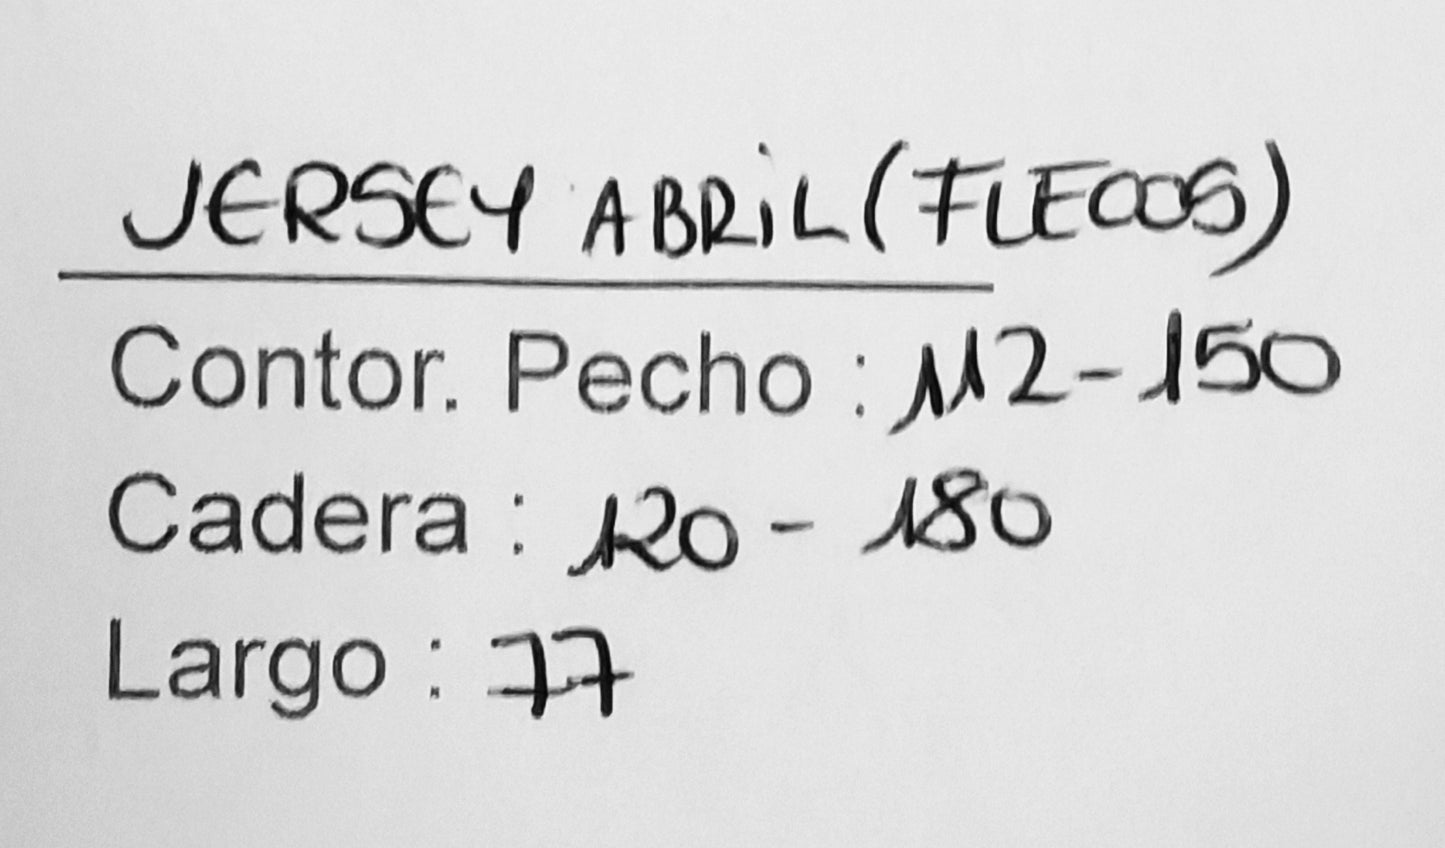 JERSEY ABRiL (FLECOS)
Contor. Pecho : 112-150
Cadera : 120 - 180
Largo : 77